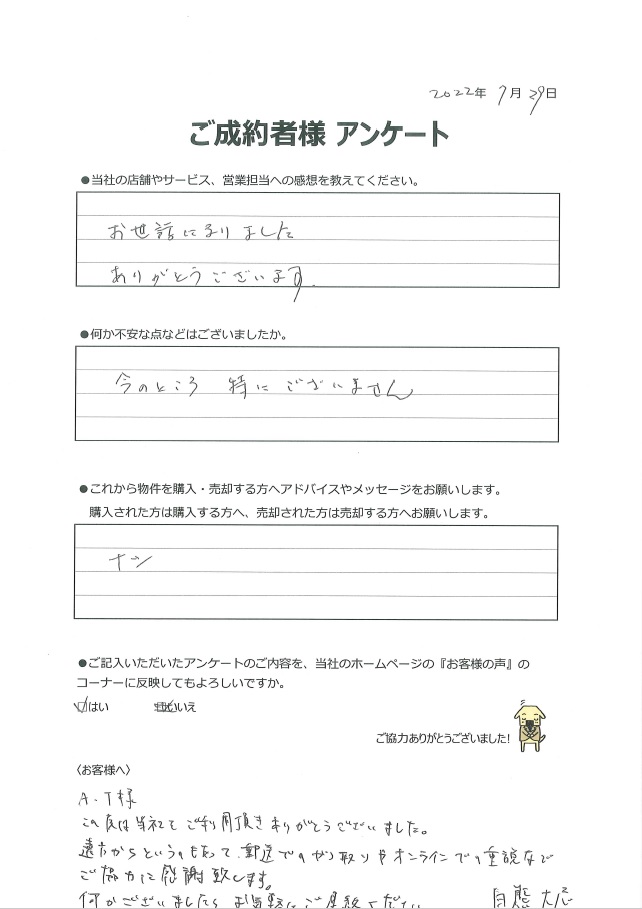 2022年 7月 29日
ご成約者様 アンケート
●当社の店舗やサービス、営業担当への感想を教えてください。
お世話になりました
ありがとうございます。
●何か不安な点などはございましたか。
今のところ 特にございません
●これから物件を購入・売却する方へアドバイスやメッセージをお願いします。
購入された方は購入する方へ、売却された方は売却する方へお願いします。
ナシ
●ご記入いただいたアンケートのご内容を、当社のホームページの『お客様の声』の
コーナーに反映してもよろしいですか。
はい いいえ
ご協力ありがとうございました!
〈お客様へ〉
A.T様
この度は当社をご利用頂きありがとうございました。
遠方からというのもあって、郵送でのやり取りやオンラインでの重説など
ご協力に感謝致します。
何かございましたら お気軽にご連絡ください